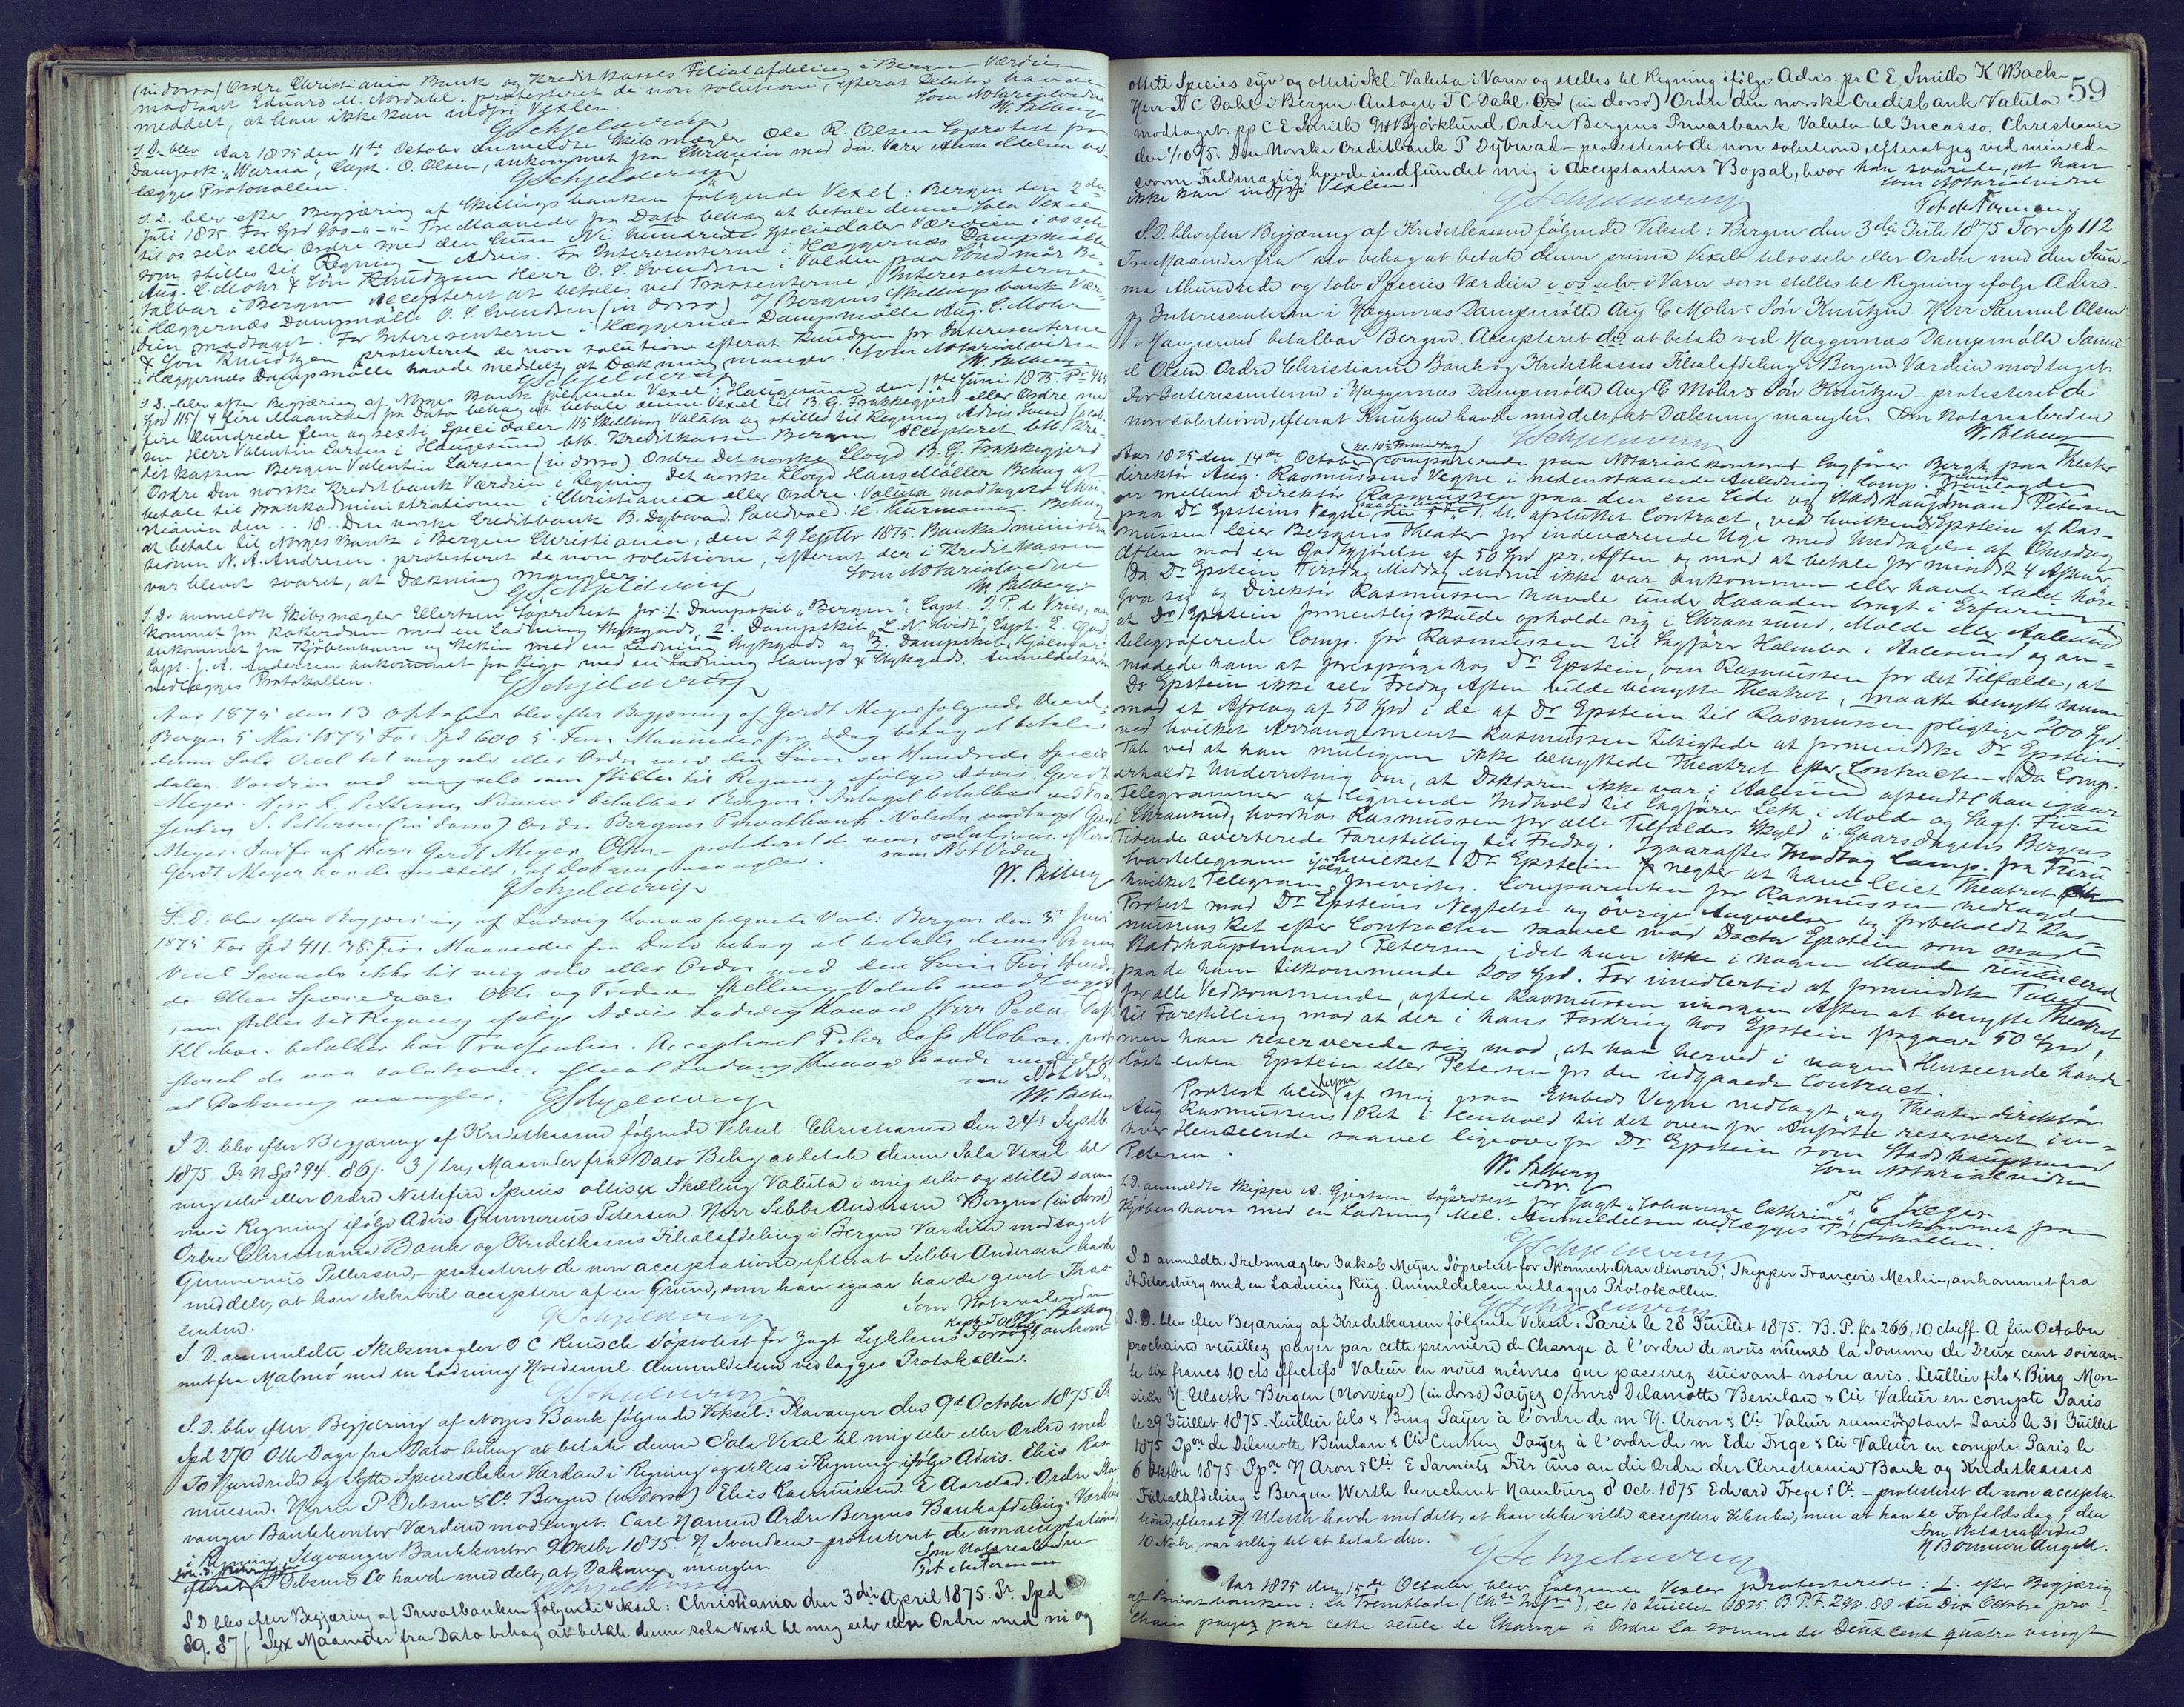 (in dorso) Ordre Christiania Bank og Kreditkasses Filialafdeling i Bergen Værdien
modtaget Eduard M. Nordahl. protesteret de non solutione, efterat Debitor havde
meddelt, at han ikke kan indfri Vexlen. Som Notarialvidne
GSchjelderup W. Patberg
S.D. blev Aar 1875 den 11te October anmeldte Skibsmægler Ole R. Olsen Søprotest for
Dampsk. „Warna", Capt. O. Olsen, ankommet fra Chrania med div. Varer Anmeldelsen ved-
lægges Protokollen.
GSchjelderup
S.D. blev efter Begjæring af Skillingsbanken følgende Vexel: Bergen den 2den
Juli 1875. For Spd 900 - " - " - Tre Maaneder fra Dato behag at betale denne Sola Vexel
til os selv eller Ordre med den Sum Ni hundrede Speciedaler Værdien i os selv
som stilles til Regning – Advis. For Interesenterne i Hæggernæs Dampmølle
Aug. C. Mohr & Søn Knudtzon Herr O. S. Svendsen i Volden paa Søndmør Be-
talbar i Bergen Accepteret at betales ved Trassenterne, Interesenterne
i Hæggernæs Dampmølle O. S. Svendsen (in dorso) o/ Bergens Skillingsbank Vær-
dien modtaget. For Interesenterne i Hæggernæs Dampmølle Aug. C. Mohr
& Søn Knudtzon protesteret de non solutione efterat Knudtzon for Interesenterne
i Hæggernæs Dampmølle havde meddelt, at Dækning mangler. Som Notarialvidne
GSchjelderup W. Patberg
S.D. blev efter Begjæring af Norges Bank følgende Vexel: Haugesund den 1ste Juni 1875. Pr 465
Spd 115/ 4 fire Maaneder fra Dato behag at betale denne Vexel til B. G. Frakkegjerd eller Ordre med
fire Hundrede fem og sexti Speciedaler 115 Skilling Valuta og stilles til Regning Advis
Herr Valentin Larsen i Haugesund btb. Kreditkassen Bergen Accepteret btb. Kre-
ditkassen Bergen Valentin Larsen (in dorso) Ordre Det norske Lloyd B. G. Frakkegjerd
Ordre Den norske Kreditbank Værdien i Regning Det norske Lloyd Hansel Møller Behag at
betale til Bankadministrationen i Christiania eller Ordre. Valuta modtaget Chri-
stiania den .. 18. Den norske Creditbank B. Dybwad. Behag
at betale til Norges Bank i Bergen Christiania, den 29 Septbr 1875. Bankadministra
tionen N. A. Andresen. protesteret de non solutione, efterat der i Kreditkassen
var blevet svaret, at Dækning mangler Som Notarialvidne
GSchjelderup W. Patberg
S.D. anmeldte Skibsmægler Ellertsen Søprotest for: 1. Dampskib „Bergen", Capt. J. P. de Vries, an
kommet fra Rotterdam med en Ladning Stykgods, 2. Dampskib „L. N. Hvidt" Capt. E.
ankommet fra Kjøbenhavn og Stettin med en Ladning Stykgods og 3. Dampskib „Gjalmar"
Capt. J. A. Andersen ankommet fra Riga med en Ladning Hamp & Stykgods. Anmeldelserne
vedlægges Protokollen.
GSchjelderup
Aar 1875 den 13 Oktober blev efter Begjæring af Gerdt Meyer følgende Vexel:
Bergen 5 Mai 1875 For Spd 600 5 Fem Maaneder fra i dag behag at betale
denne Sola Vexel til mig selv eller Ordre med den Sum sex Hundrede Specie
daler. Værdien ved mig selv som stilles til Regning ifølge Advis. Gerdt
Meyer. Herr S. Pettersen Namsos betalbar Bergen. Antaget betalbar ved Tra
senten S. Pettersen (in dorso) Ordre Bergens Privatbank. Valuta modtaget Gerdt
Meyer. Indfr af Herr Gerdt Meyer – protesteret non solutione, efterat
Gerdt Meyer havde meddelt, at Dækning mangler. som Not Vidne
GSchjelderup W. Patberg
S.D. blev efter Begjæring af Ludwig Konow følgende Vexel: Bergen den 3d Juni
1875 For Spd 411. 38. Fire Maaneder fra Dato behag at betale denne Prima
Vexel Secunda ikke til mig selv eller Ordre med den Sum Fire Hundre
de Elleve Speciedaler Otte og Tredive Skilling Valuta modtaget
som stilles til Regning ifølge Advis Ludwig Konow Herr Peder Dass
Klæboe. betalbar hos Trassenten. Accepteret Peter Dass Klæboe. prote
steret de non solutione, efterat Ludwig Konow havde meddelt
at Dækning mangler. som Not Vidne
GSchjelderup W. Patberg
S.D. blev efter Begjæring af Kreditkassen følgende Veksel: Christiania den 24d Septbr
1875. Pr N Spd 94. 86/. 3/ trej Maaneder fra Dato Behag at betale denne Sola Vexel til
mig selv eller Ordre Nittifire Species ottisex Skilling Valuta i mig selv og stilles sam-
me i Regning ifølge Advis Gunnerius Petersen Herr Sebbe Andersen Bergen (in dorso)
Ordre Christiania Bank og Kreditkasses Filialafdeling i Bergen Værdien modtaget
Gunnerius Pettersen, – protesteret de non acceptatione, efterat Sebbe Andersen havde
meddelt, at han ikke vil acceptere af en Grund, som han igaar havde givet Tras-
senten. Som Notarialvidne
GSchjelderup W Patberg
S.D. anmeldte Skibsmægler O C Reusch Søprotest for Jagt Lykkens Forsøg, ankom-
met fra Malmö med en Ladning Hvedemel. Anmeldelsen vedlægges Protokollen.
GSchjelderup
S.D. blev efter Begjæring af Norges Bank følgende Veksel: Stavanger den 9d October 1875. Pr
Spd 270 Otte Dage fra Dato behag at betale denne Sola Vexel til mig selv eller Ordre med
To Hundrede og Sytti Speciesdaler Værdien i Regning og stilles i Regning ifølge Advis. Elias Ras
mussen. Herrer P Ibsen & Co Bergen (in dorso) Elias Rasmussen. E Aarstad. Ordre Sta
vanger Bankkontor Værdien modtaget. Carl Hansen Ordre Bergens Bankafdeling. Værdien
i Regning Stavanger Bankkontor 9 Oktbr 1875. N Svendsen – protesteret de non acceptatione
efterat P Ibsen & Co havde meddelt, at Dækning mangler. Som Notarialvidne
GSchjelderup
S D blev efter Begjæring af Privatbanken følgende Veksel: Christiania den 3die April 1875. Pr Spd
89. 87/. Sex Maaneder fra Dato behag at betale denne sola Vexel til mig selv eller Ordre med ni og
59
otteti Species syv og otteti Skl. Valuta i Varer og stilles til Regning ifølge Advis. pr C E Smith K Backe
Herr T C Dahl i Bergen. Antaget T C Dahl. (in dorso) Ordre den norske Creditbank Valuta
modtaget. pp C E Smith Björklund Ordre Bergens Privatbank Valuta til Incasso. Christiania
den 1/10 75. Den Norske Creditbank P Dybwad – protesteret de non solutione, efterat jeg ved min ed-
svorne Fuldmægtig havde indfundet mig i Acceptantens Bopæl, hvor han svarede, at han
ikke kan indfri Vexlen. Som Notarialvidne
GSchjelderup
S.D. blev efter Begjæring af Kreditkassen følgende Veksel: Bergen den 3die Juli 1875 For Sp 112
Tre Maaneder fra dato behag at betale denne prima Vexel til os selv eller Ordre med den Sum
ma Ethundrede og tolv Species Værdien i os selv i Varer som stilles til Regning ifølge Advis.
pr Interessenterne i Hæggernæs Dampmølle Aug C Mohr & Søn Knutzen. Herr Samuel Olsen
Haugesund betalbar Bergen. Accepteret do at betale ved Hæggernæs Dampmølle Samu-
el Olsen. Ordre Christiania Bank og Kreditkasses Filialafdeling i Bergen. Værdien modtaget.
For Interessenterne i Hæggernæs Dampmølle Aug C Mohr & Søn Knutzen – protesteret de
non solutione, efterat Knutzen havde meddelt, at Dækning mangler. Som Notarialvidne
GSchjelderup W. Patberg
Aar 1875 den 14de October (kl. 10½ Formiddag) comparerede paa Notarialkontoret Sagfører Bergh paa Theater
direktør Aug. Rasmussens Vegne i nedenstaaende Anledning. Comp. fremlagde
en mellem Direktør Rasmussen paa den ene Side og Stadshauptmand Petersen
paa Dr Epsteins Vegne den 5te d. M. afsluttet Contract, ved hvilken Dr Epstein af Ras-
mussen leier Bergens Theater for indeværende Uge med Undtagelse af Onsdag
Aften mod en Godtgjørelse af 50 Spd pr. Aften og mod at betale for mindst 4 Aftener.
Da Dr Epstein Tirsdag Middag endnu ikke var ankommen eller havde ladet høre
fra sig og Direktør Rasmussen havde under Haanden bragt i Erfaring
at Dr Epstein formentlig skulde opholde sig i Chransund, Molde eller Aalesund
telegraferede Comp. for Rasmussen til Sagfører Holmboe i Aalesund og an-
modede ham at forespørge hos Dr Epstein, om Rasmussen for det Tilfælde, at
Dr Epstein ikke selv Fredag Aften vilde benytte Theatret, maatte benytte samme
mod et Afslag af 50 Spd i de af Dr Epstein til Rasmussen pligtige 200 Spd.
ved hvilket Arrangement Rasmussen tilsigtede at formindske Dr Epsteins
Tab ved at han muligens ikke benyttede Theatret efter Contracten. Da Comp.
erholdt Underretning om, at Doktoren ikke var i Aalesund afsendte han igaar
Telegrammer af lignende Indhold til Sagfører Leth i Molde og Sagf. Furu
i Chransund, hvorhos Rasmussen for alle Tilfældes Skyld i Gaarsdagens Bergens
Tidende averterede Forestilling til Fredag. Igaaraftes modtog Comp. fra Furu
Svartelegram ifølge hvilket Dr Epstein negter at have leiet Theatret
hvilket Telegram forevistes. Comparenten for Rasmussen nedlagde
Protest mod Dr Epsteins Negtelse og øvrige Angivelse og forbeholdt Ras-
mussens Ret efter Contracten saavel mod Doctor Epstein som mod
Stadshauptmand Petersen, idet han ikke i nogen Maade renuncered
paa de ham tilkommende 200 Spd. For imidlertid at formindske Tabet
for alle Vedkommende, agtede Rasmussen imorgen Aften at benytte Theatret
til Forestilling mod at der i hans Fordring hos Epstein fragaar 50 Spd,
men han reserverede sig mod, at han herved i nogen Henseende havde
løst enten Epstein eller Petersen fra den udgaaede Contract.
Protest blev derpaa af mig paa Embeds Vegne nedlagt, og Theaterdirektør
Aug. Rasmussens Ret i Henhold til det ovenfor Anførte reserveret i en-
hver Henseende saavel ligeoverfor Dr Epstein som Stadshauptmand
Petersen. Som Notarialvidne
W. Patberg
S.D. anmeldte Skipper A. Gjertsen Søprotest for Jagt „Johanne Cathrine", ankommet fra
Kjøbenhavn med en Ladning Mel. Anmeldelsen vedlægges Protokollen.
GSchjelderup
S D anmeldte Skibsmægler Jakob Meyer Søprotest for Skonnert „Gravelinoise", Skipper François Merlin, ankommet fra
St Petersburg med en Ladning Rug. Anmeldelsen vedlægges Protokollen.
GSchjelderup
S.D. blev efter Begjæring af Kreditkassen følgende Veksel: Paris le 28 Juillet 1875. B. P. fcs 266,10 cts eff. A fin Octobre
prochain veuillez payer par cette première de Change à l'ordre de nous mêmes la Somme de Deux cent soixan-
te six francs 10 cts effectifs Valeur en nous mêmes que passerez suivant notre avis. Leullier fils & Bing Mon-
sieur H. Ulseth Bergen (Norwège) (in dorso) Payez o/mrs Delamotte Benilan & Cie Valeur en compte Paris
le 29 Juillet 1875. Leullier fils & Bing Payez à l'ordre de m N. Aron & Cie Valeur comptant Paris le 31 Juillet
1875 Ppon de Delamotte Benilan & Cie Payez à l'ordre de m Ede Frege & Cie Valeur en compte Paris le
6 Oktbr 1875 Ppon N Aron & Cie E Sarnitz Für uns an die Ordre der Christiania Bank og Kreditkasses
Filialafdeling i Bergen Werth berechnet Hamburg 8 Oct. 1875 Edward Frege & Co – protesteret de non accepta-
tione, efterat H Ulseth havde meddelt, at han ikke vilde acceptere Vekslen, men at han til Forfaldsdag, den
10 Novbr, var villig til at betale den. Som Notarialvidne
GSchjelderup
Aar 1875 den 15de October blev følgende Vexler protesterede: 1. efter Begjæring
af Privatbanken: La Tremblade (Chte Infre), le 10 Juillet 1875. B.P.F. 290.88 Au Dix Octobre pro-
chain payez par cette seule de Change à Ordre la somme de Deux cent quatre vingt